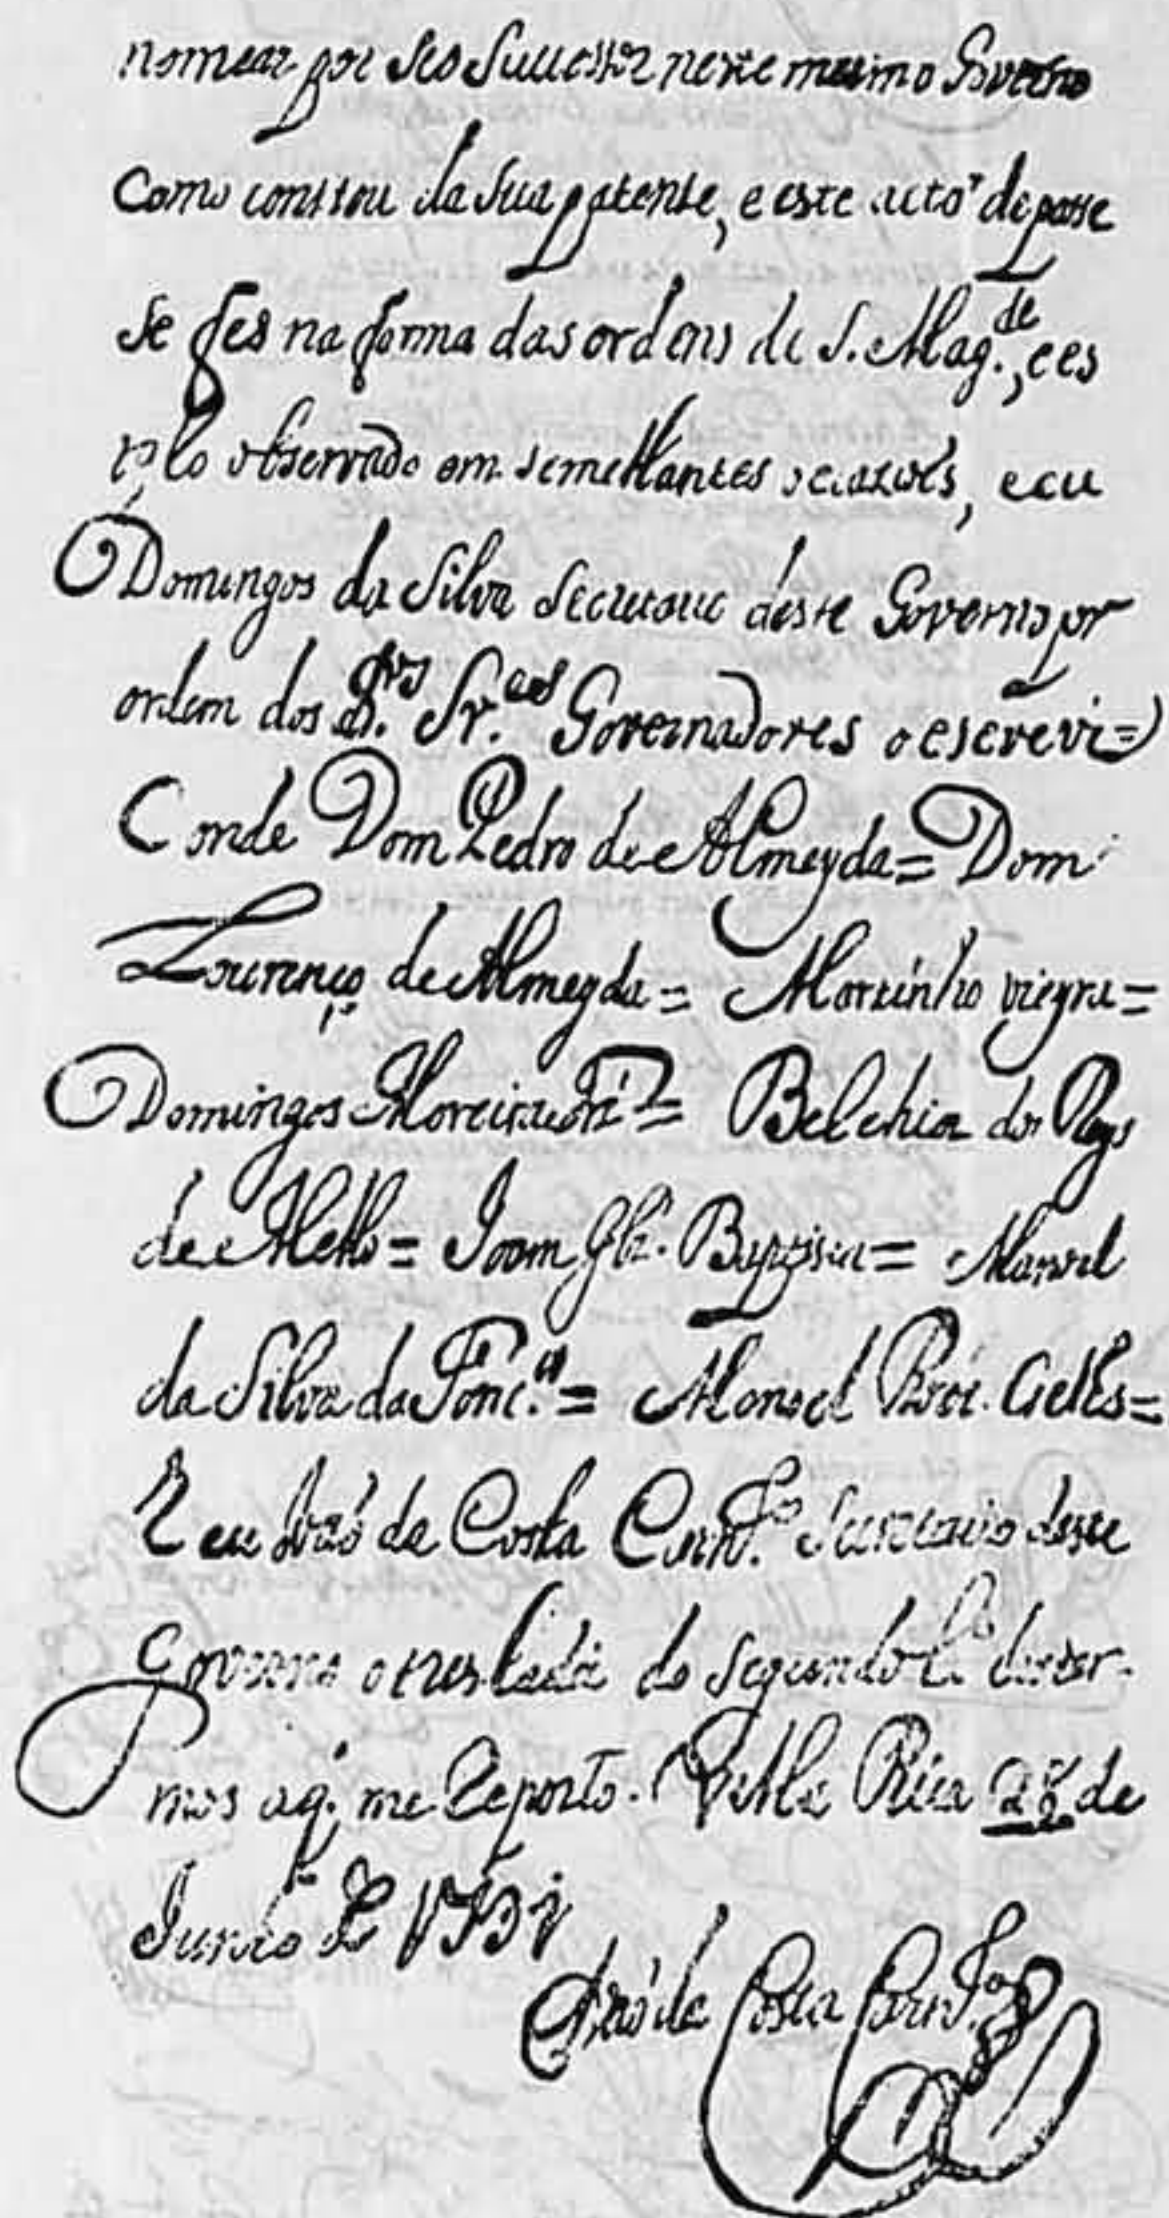 nomear por seo Sucessor neste mesmo Governo
como constou da sua patente, e este acto de posse
se fes na forma das ordens de S. Mag.de, e es
tylo observado em semelhantes occazioẽs, e eu
Domingos da Silva Secretario deste Governo por
ordem dos d.os Sr.es Governadores o escrevi =
Conde Dom Pedro de Almeyda = Dom
Lourenço de Almeyda = Martinho vieyra =
Domingos Moreira =  Belchior dos Reys
de Mello = Joam Glz. Baptista = Manoel
da Silva da Fonc.ca = Manoel Roiz. =
E eu João da Costa Carn.ro Secretario deste
Governo o tresladei do segundo L.o de ter-
mos a q. me Reporto. Villa Rica 28 de
Junho de 1731
João da Costa Carn.ro